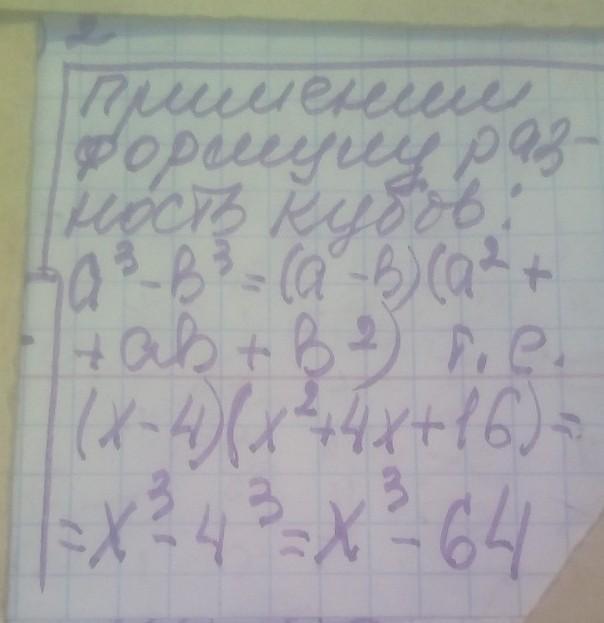 2
Применим
формулу раз-
ность кубов:
a³-в³=(a-в)(a²+
+aв+в²) т.е.
(x-4)(x²+4x+16)=
=x³-4³=x³-64